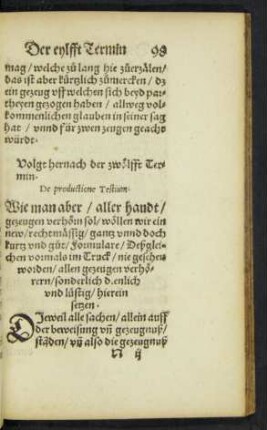 Der eylfft Termin 98
mag / welche zů lang hie zůerzålen /
das ist aber kürtzlich zůmercken / dz
ein gezeug vff welchen sich beyd par-
theyen gezogen haben / allweg vol-
kommenlichen glauben in seiner sag
hat / vnnd für zwen zeugen geacht
würdt.
Volgt hernach der zwölfft Ter-
min.
De productione Testium.
Wie man aber / aller handt /
gezeugen verhörn sol / wöllen wir ein
new / rechtmässig / gantz vnnd doch
kurtz vnd gůt / Formulare / Deßglei-
chen vormals im Truck / nie geschen
worden / allen gezeugen verhö-
rern / sonderlich dienlich
vnd lüstig / hierein
setzen.
DIeweil alle sachen / allein auff
der beweisung vñ gezeugnuß /
ståden / vñ also die gezeugnuß
N ij